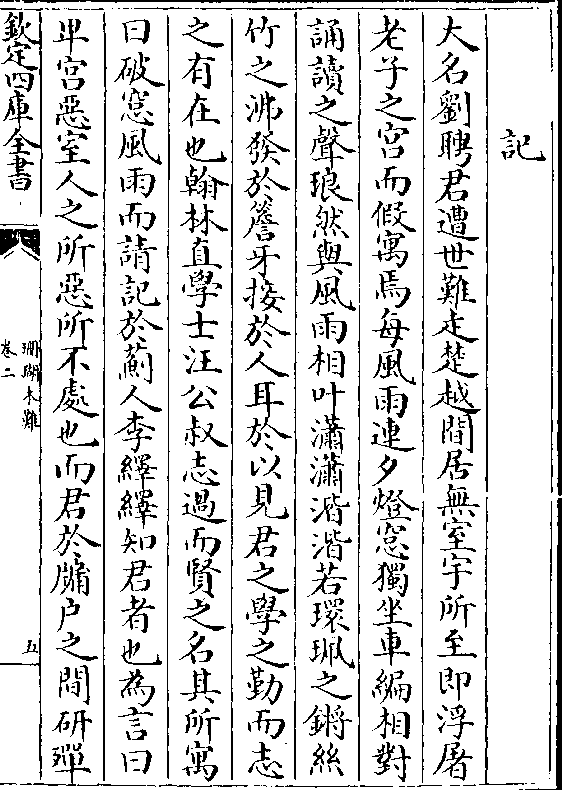 記
大名劉聘君遭世難走楚越間居無室宇所至即浮屠
老子之宮而假寓焉每風雨連夕燈窓獨坐車編相對
誦讀之聲琅然與風雨相叶瀟瀟湝湝若環珮之鏘絲
竹之沸發於簷牙接於人耳於以見君之學之勤而志
之有在也翰林直學士汪公叔志過而賢之名其所寓
曰破窓風雨而請記於薊人李繹繹知君者也為言曰
卑宮惡室人之所惡所不處也而君於牖户之間研殫
欽定四庫全書
珊瑚木難
卷二
五